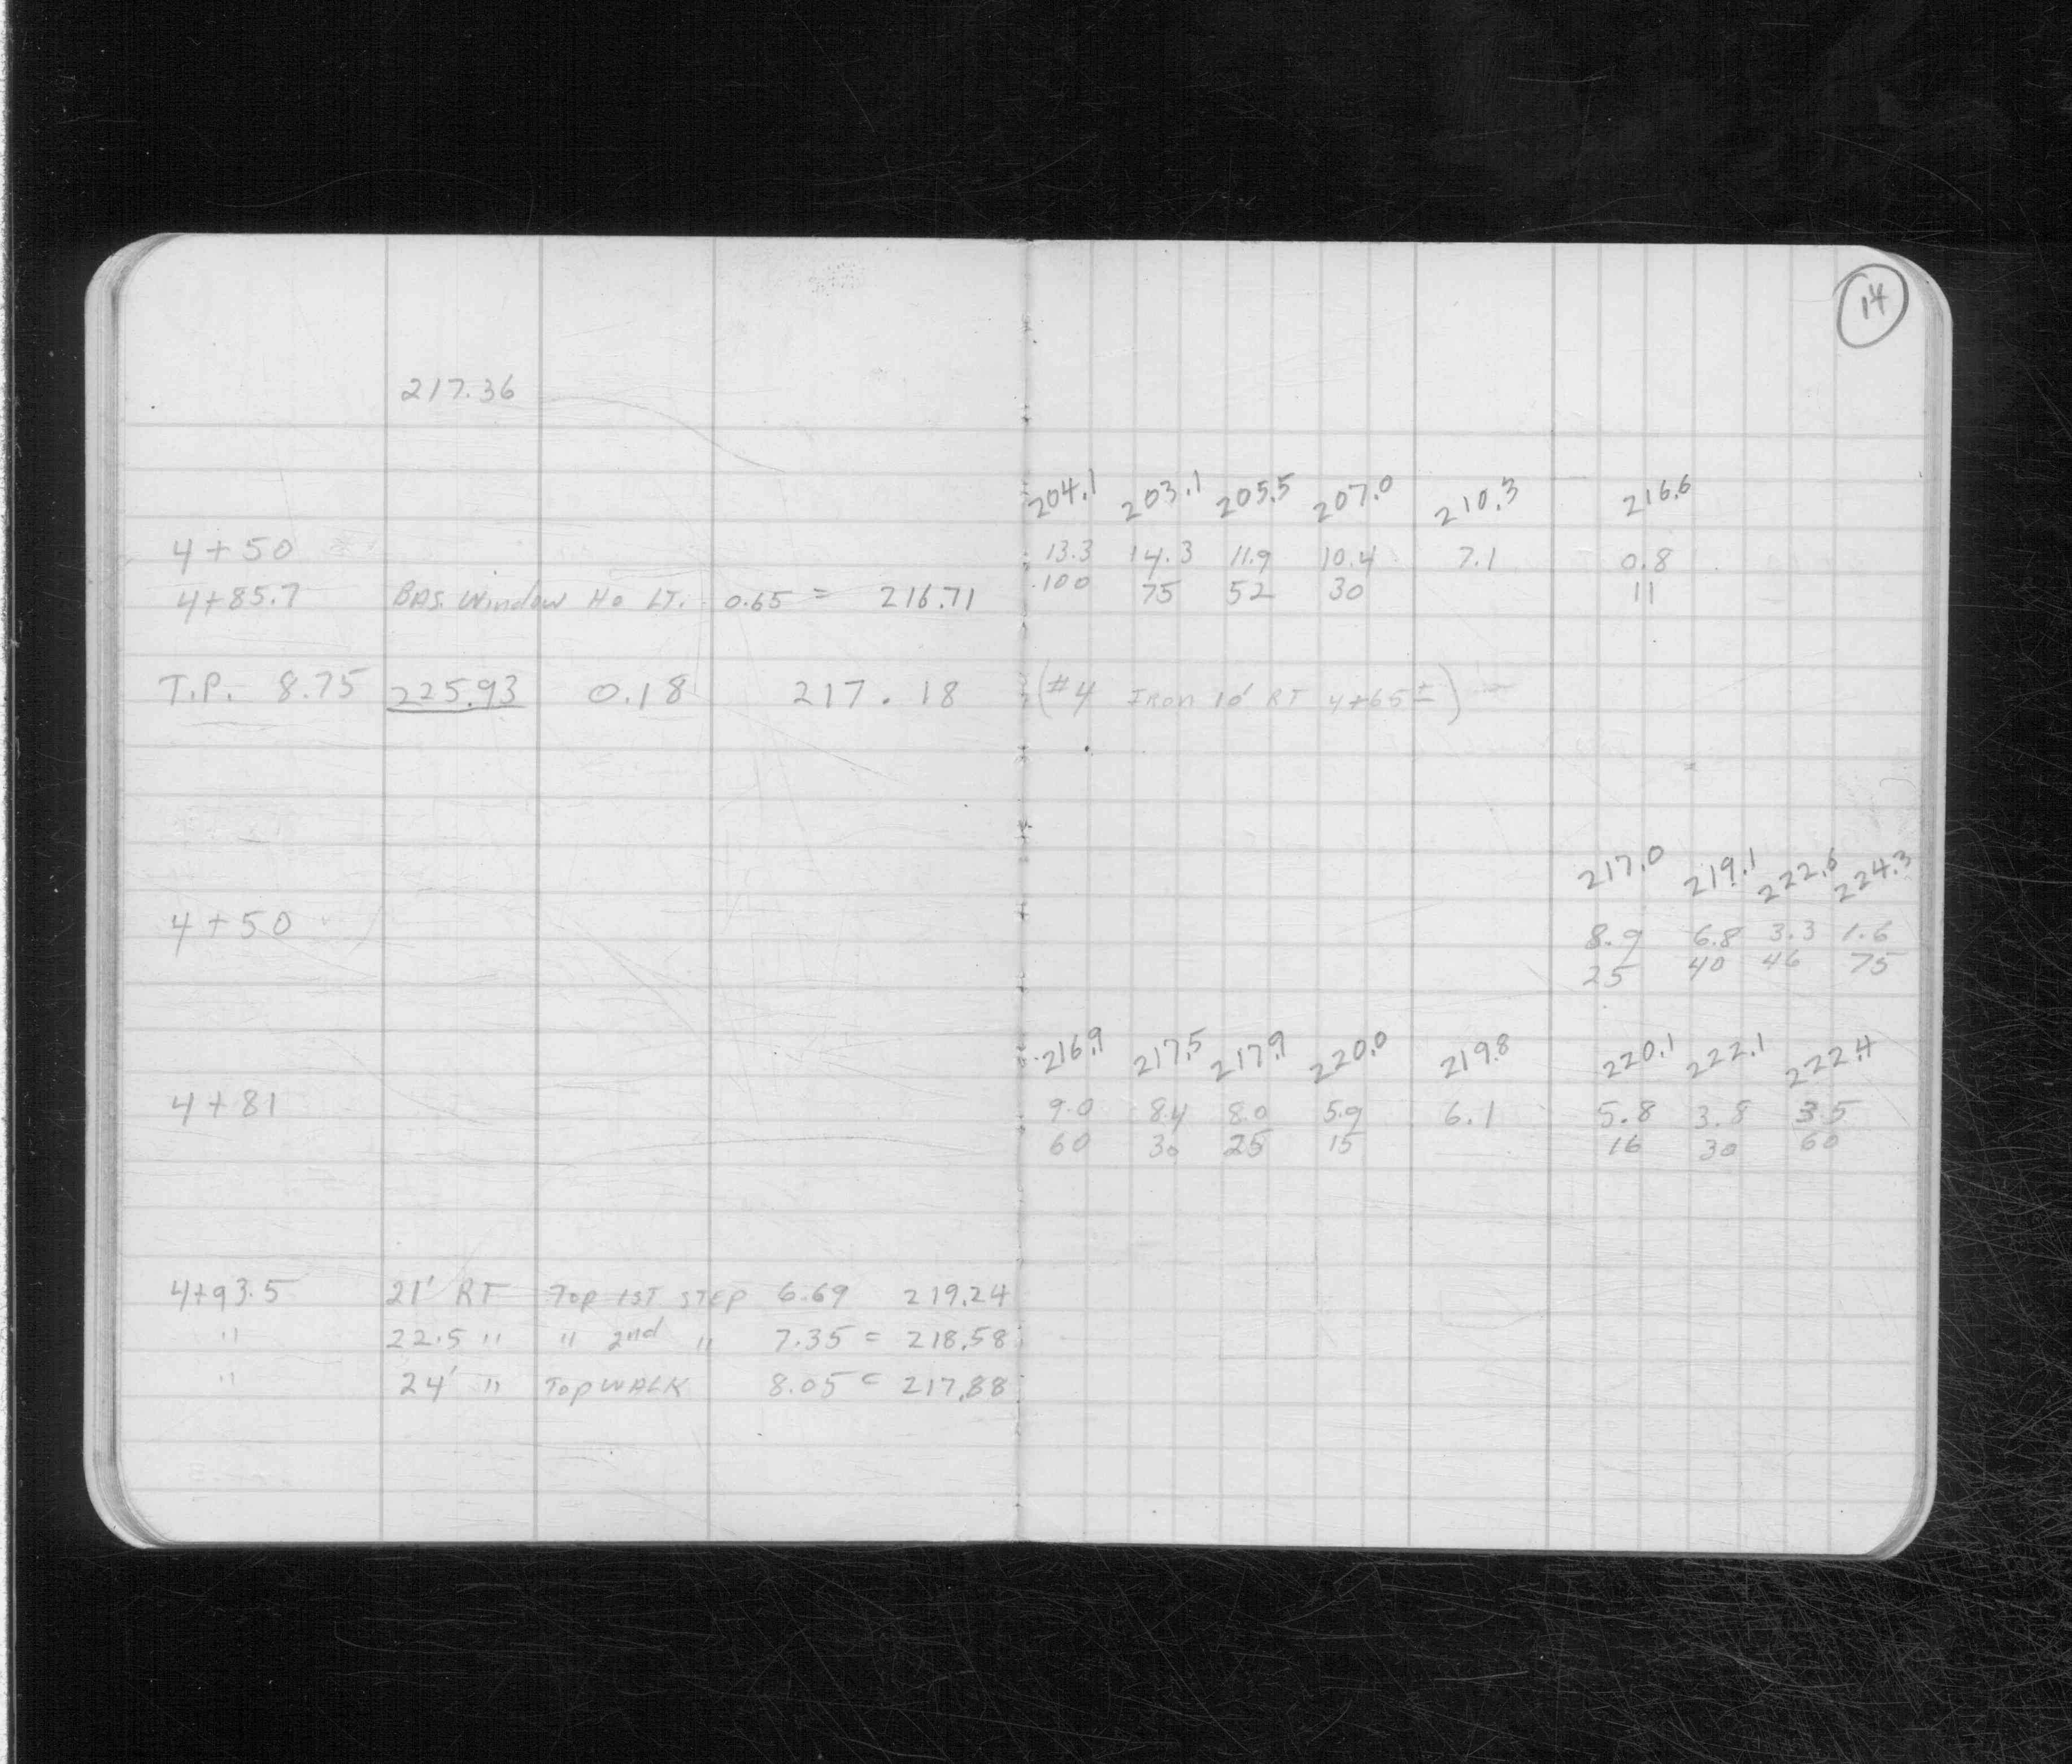 14
217.36
204.1 203.1 205.5 207.0 210.3 216.6
4+50 13.3 14.3 11.9 10.4 7.1 0.8
100 75 52 30 11
4+85.7 BAS. Window Ho LT. 0.65 = 216.71
T.P. 8.75 225.93 0.18 217.18 (#4 IRON 10' RT 4+65±)
217.0 219.1 222.6 224.3
4+50 8.9 6.8 3.3 1.6
25 40 46 75
216.9 217.5 217.9 220.0 219.8 220.1 222.1 222.4
4+81 9.0 8.4 8.0 5.9 6.1 5.8 3.8 3.5
60 30 25 15 16 30 60
4+93.5 21' RT TOP 1ST STEP 6.69 219.24
" 22.5 " " 2nd " 7.35 = 218.58
" 24' " TOP WALK 8.05 = 217.88